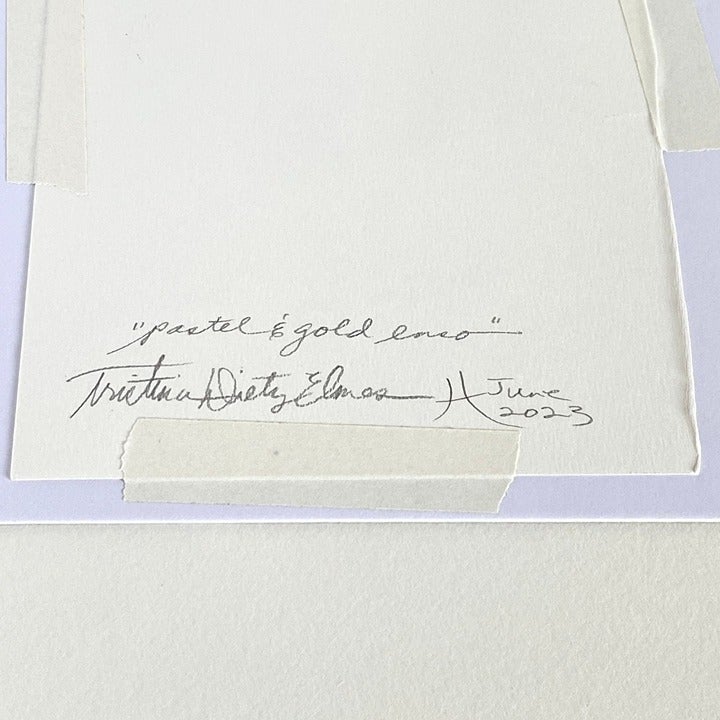 "pastel & gold enso"
Tristina Dietz Elmes June
2023